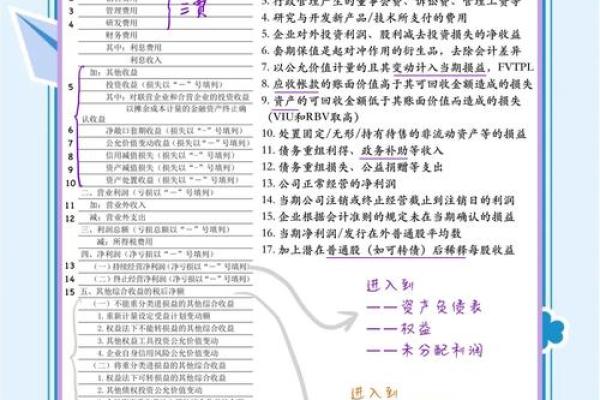 3
管理费用
4
研发费用
财务费用
其中：利息费用
利息收入
加：其他收益
5
投资收益（损失以“－”号填列）
其中：对联营企业和合营企业的投资收益
以摊余成本计量的金融资产终止确认收益
6
净敞口套期收益（损失以“-”号填列）
7
公允价值变动收益（损失以“－”号填列）
8
信用减值损失（损失以“－”号填列）
9
资产减值损失（损失以“－”号填列）
10
资产处置收益（损失以“－”号填列）
二、营业利润（亏损以“－”号填列）
11
加：营业外收入
12
减：营业外支出
三、利润总额（亏损以“－”号填列）
减：所得税费用
四、净利润（净亏损以“－”号填列）
13
（一）持续经营净利润（净亏损以“－”号填列）
14
（二）终止经营净利润（净亏损以“－”号填列）
15
五、其他综合收益的税后净额
（一）不能重分类进损益的其他综合收益
1.重新计量设定受益计划变动额
2.权益法下不能转损益的其他综合收益
3.其他权益工具投资公允价值变动
4.企业自身信用风险公允价值变动
（二）将重分类进损益的其他综合收益
1.权益法下可转损益的其他综合收益
2.其他债权投资公允价值变动
三费
4. 研究与开发新产品/技术所支付的费用
5. 企业对外投资利润、股利减去投资损失的净收益
6. 套期保值无起对冲作用的衍生品，去除会计差异
7. 以公允价值计量的且其变动计入当期损益，FVTPL
8. 应收帐款的账面价值高于其可回收金额造成的损失
9. 资产的可回收金额低于其账面价值而造成的损失
(VIU和RBV取高)
10. 处置固定/无形/持有待售的非流动资产等的损益
11. 债务重组利得、政务补助等收入
12. 债务重组损失、公益捐赠等支出
13. 公司正常经营的净利润
14. 当期公司注销或终止经营截止到注销日的利润
15. 企业根据会计准则的规定未在当期确认的损益
16. 当期净利润/发行在外普通股平均数
17. 加上潜在普通股（如可转债）后稀释每股收益
进入到
——资产负债表
——权益
——未分配利润
进入到